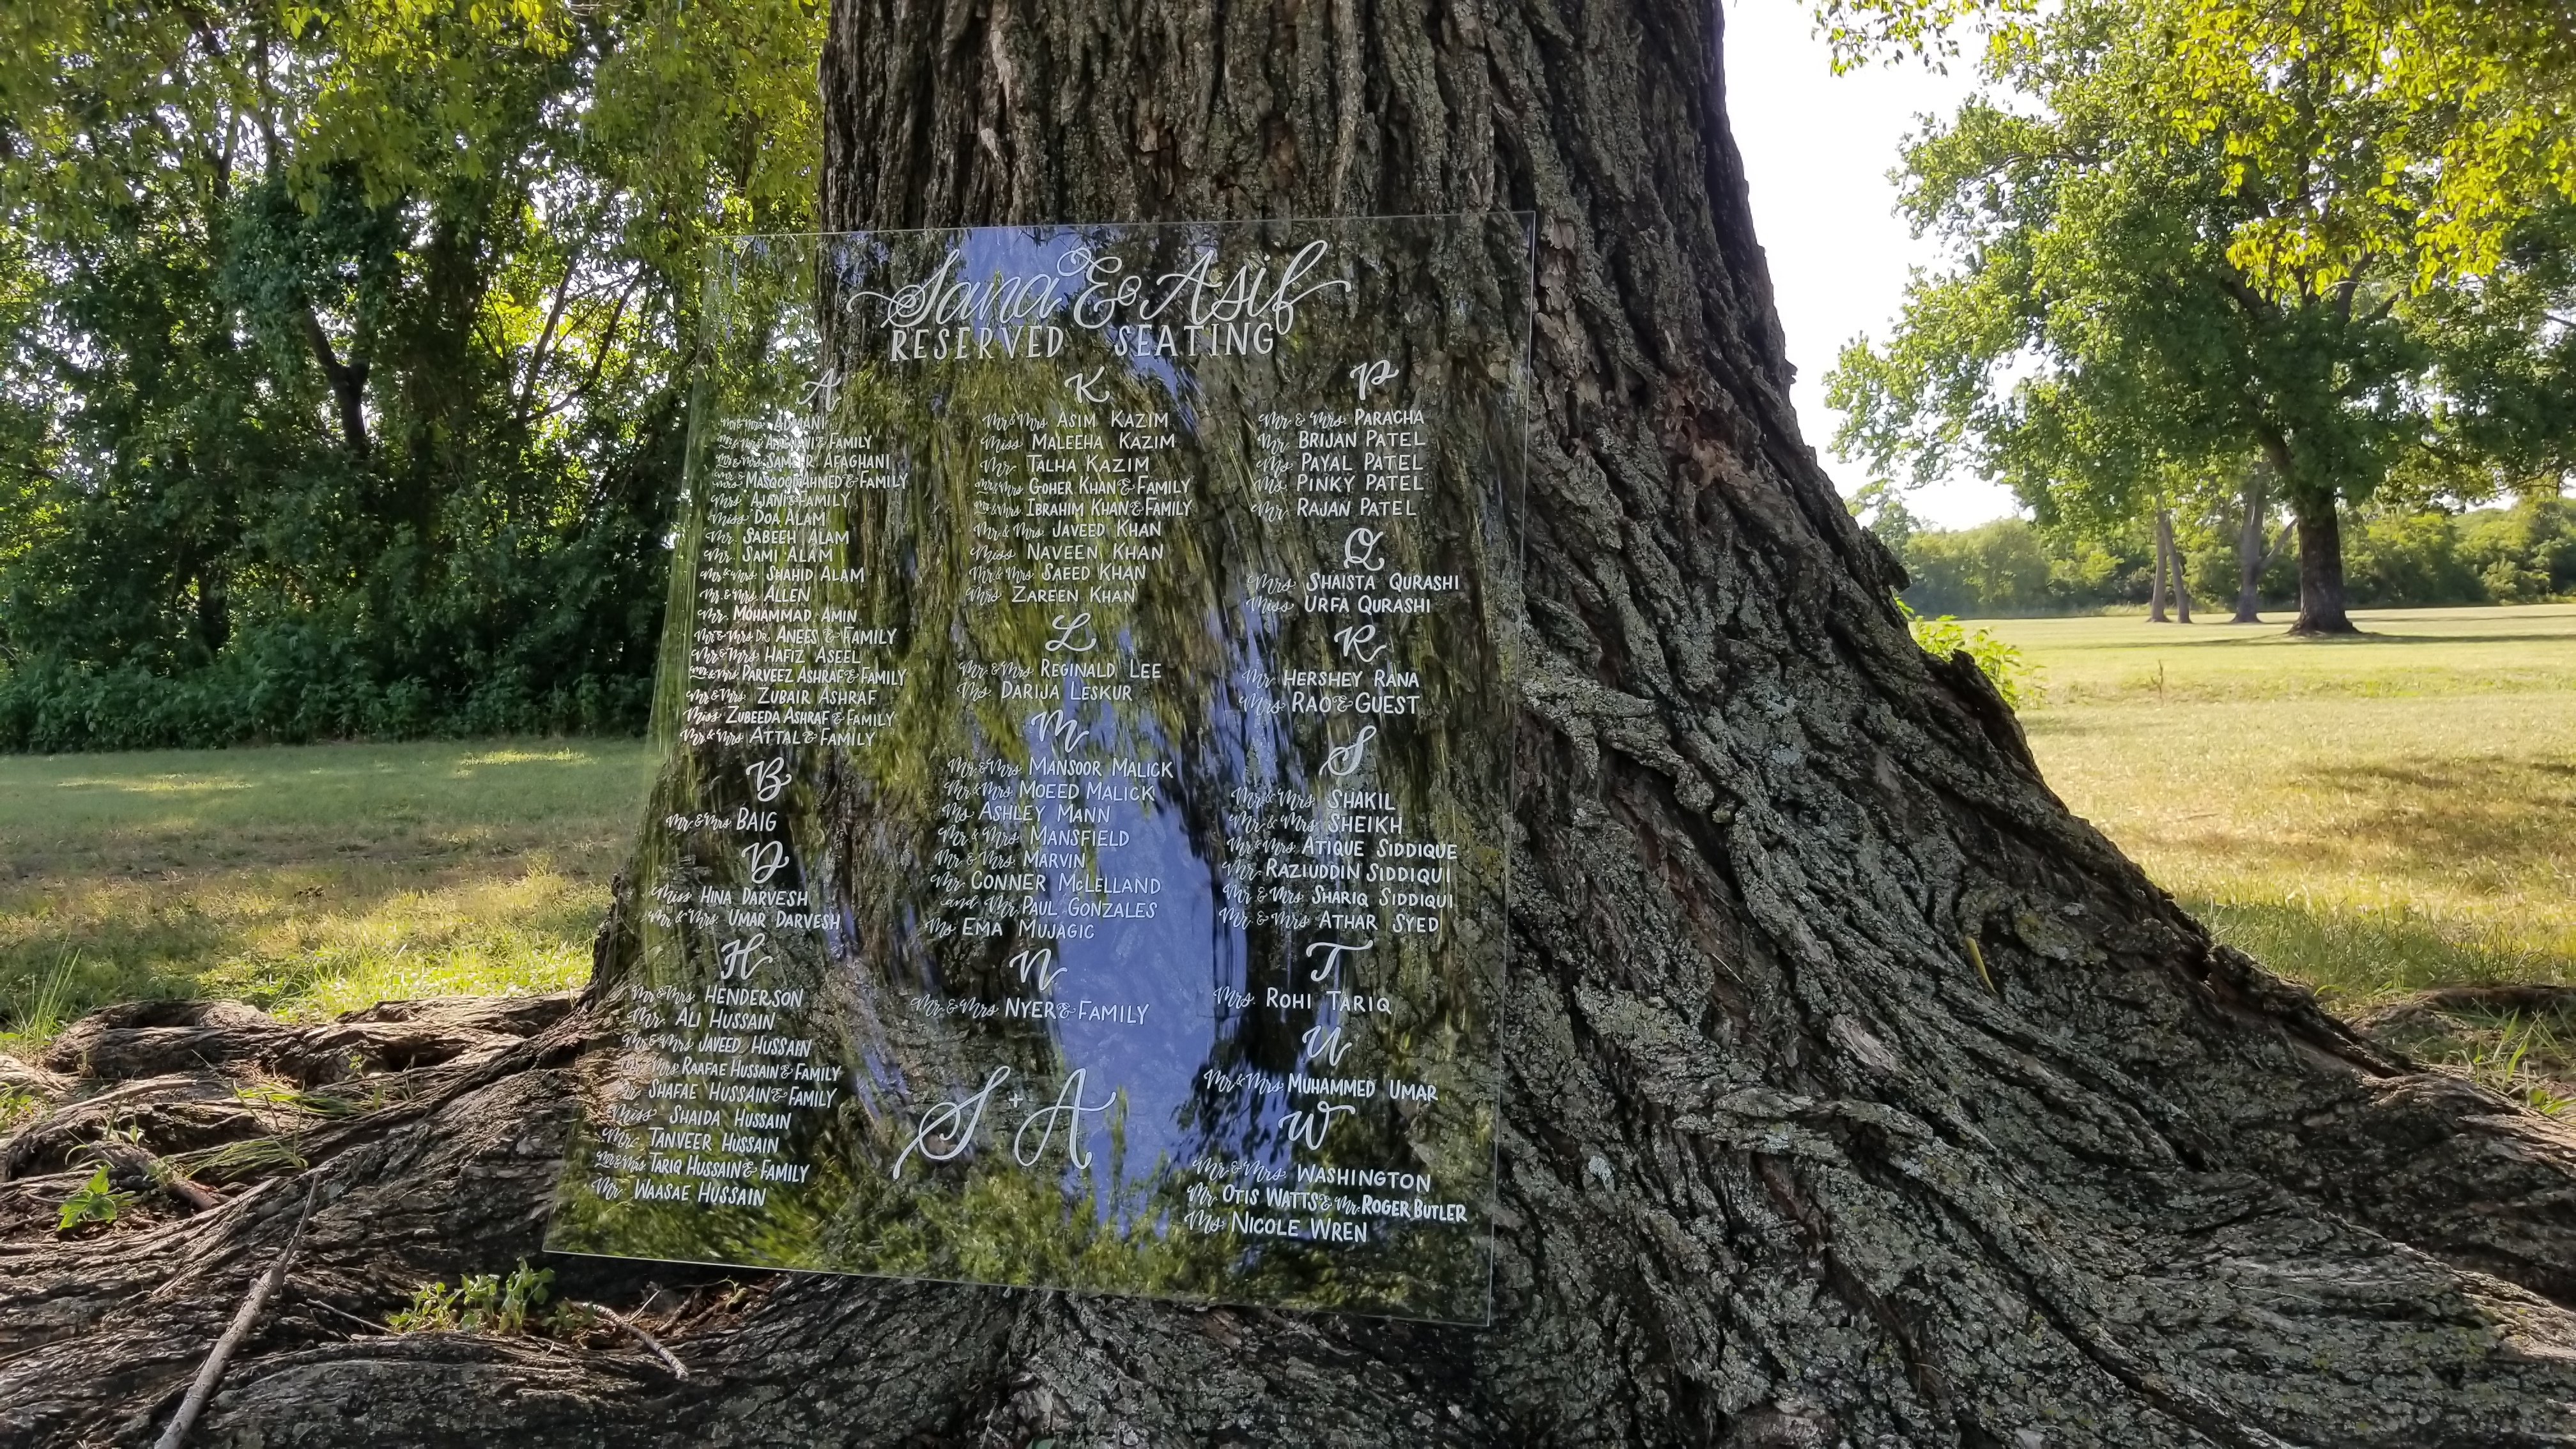 Sana & Asif
RESERVED SEATING
A
Mr & Mrs ADMANI
Mr & Mrs AFAGHANI & FAMILY
Mr & Mrs SAMEER AFAGHANI
Mr & Mrs MASOOD AHMED & FAMILY
Mrs AJANI & FAMILY
Miss DOA ALAM
Mr. SABEEH ALAM
Mr. SAMI ALAM
Mr & Mrs SHAHID ALAM
Mr & Mrs ALLEN
Mr. MOHAMMAD AMIN
Mr & Mrs Dr. ANEES & FAMILY
Mr & Mrs HAFIZ ASEEL
Mr & Mrs PARVEEZ ASHRAF & FAMILY
Mr & Mrs ZUBAIR ASHRAF
Miss ZUBEEDA ASHRAF & FAMILY
Mr & Mrs ATTAL & FAMILY
B
Mr & Mrs BAIG
D
Miss HINA DARVESH
Mr & Mrs. UMAR DARVESH
H
Mr & Mrs. HENDERSON
Mr. ALI HUSSAIN
Mr & Mrs JAVEED HUSSAIN
Mr & Mrs RAAFAE HUSSAIN & FAMILY
Mr SHAFAE HUSSAIN & FAMILY
Miss SHAIDA HUSSAIN
Mrs TANVEER HUSSAIN
Mr & Mrs TARIQ HUSSAIN & FAMILY
Mr WAASAE HUSSAIN
K
Mr & Mrs ASIM KAZIM
Miss MALEEHA KAZIM
Mr TALHA KAZIM
Mr & Mrs GOHER KHAN & FAMILY
Mr & Mrs IBRAHIM KHAN & FAMILY
Mr & Mrs. JAVEED KHAN
Miss NAVEEN KHAN
Mr & Mrs SAEED KHAN
Mrs ZAREEN KHAN
L
Mr & Mrs REGINALD LEE
Ms DARIJA LESKUR
M
Mr & Mrs MANSOOR MALICK
Mr & Mrs MOEED MALICK
Ms ASHLEY MANN
Mr & Mrs. MANSFIELD
Mr & Mrs. MARVIN
Mr CONNER McLELLAND
and Mr PAUL GONZALES
Ms EMA MUJAGIC
N
Mr & Mrs NYER & FAMILY
S + A
P
Mr & Mrs. PARACHA
Mr BRIJAN PATEL
Ms PAYAL PATEL
Ms PINKY PATEL
Mr RAJAN PATEL
Q
Mrs SHAISTA QURASHI
Miss URFA QURASHI
R
Mr HERSHEY RANA
Mrs RAO & GUEST
S
Mr & Mrs. SHAKIL
Mr & Mrs. SHEIKH
Mr & Mrs ATIQUE SIDDIQUE
Mr RAZIUDDIN SIDDIQUI
Mr & Mrs SHARIQ SIDDIQUI
Mr & Mrs ATHAR SYED
T
Mrs. ROHI TARIQ
U
Mr & Mrs MUHAMMED UMAR
W
Mr & Mrs. WASHINGTON
Mr OTIS WATTS & Mr ROGER BUTLER
Ms NICOLE WREN